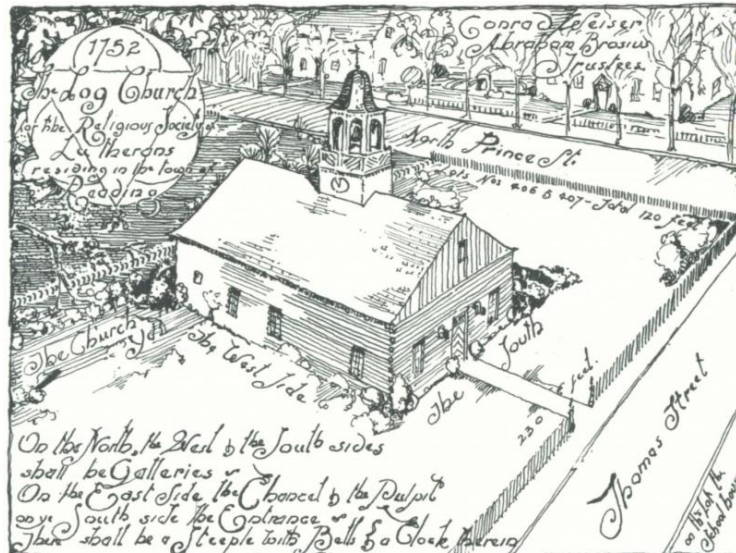 1752
The Log Church
for the Religious Society of
Lutherans
residing in the town of
Reading
Conrad Weiser
Abraham Brosius
Trustees
North Prince St.
Lots Nos 406 & 407 - Total 120 feet
The Church Yd
The West Side
The South
230 feet.
Thomas Street
on this lot the
School house
On the North, the West & the South sides
shall be Galleries &
On the East Side the Chancel & the Pulpit
on ye South side the Entrance &
There shall be a Steeple with Bells & a Clock therein